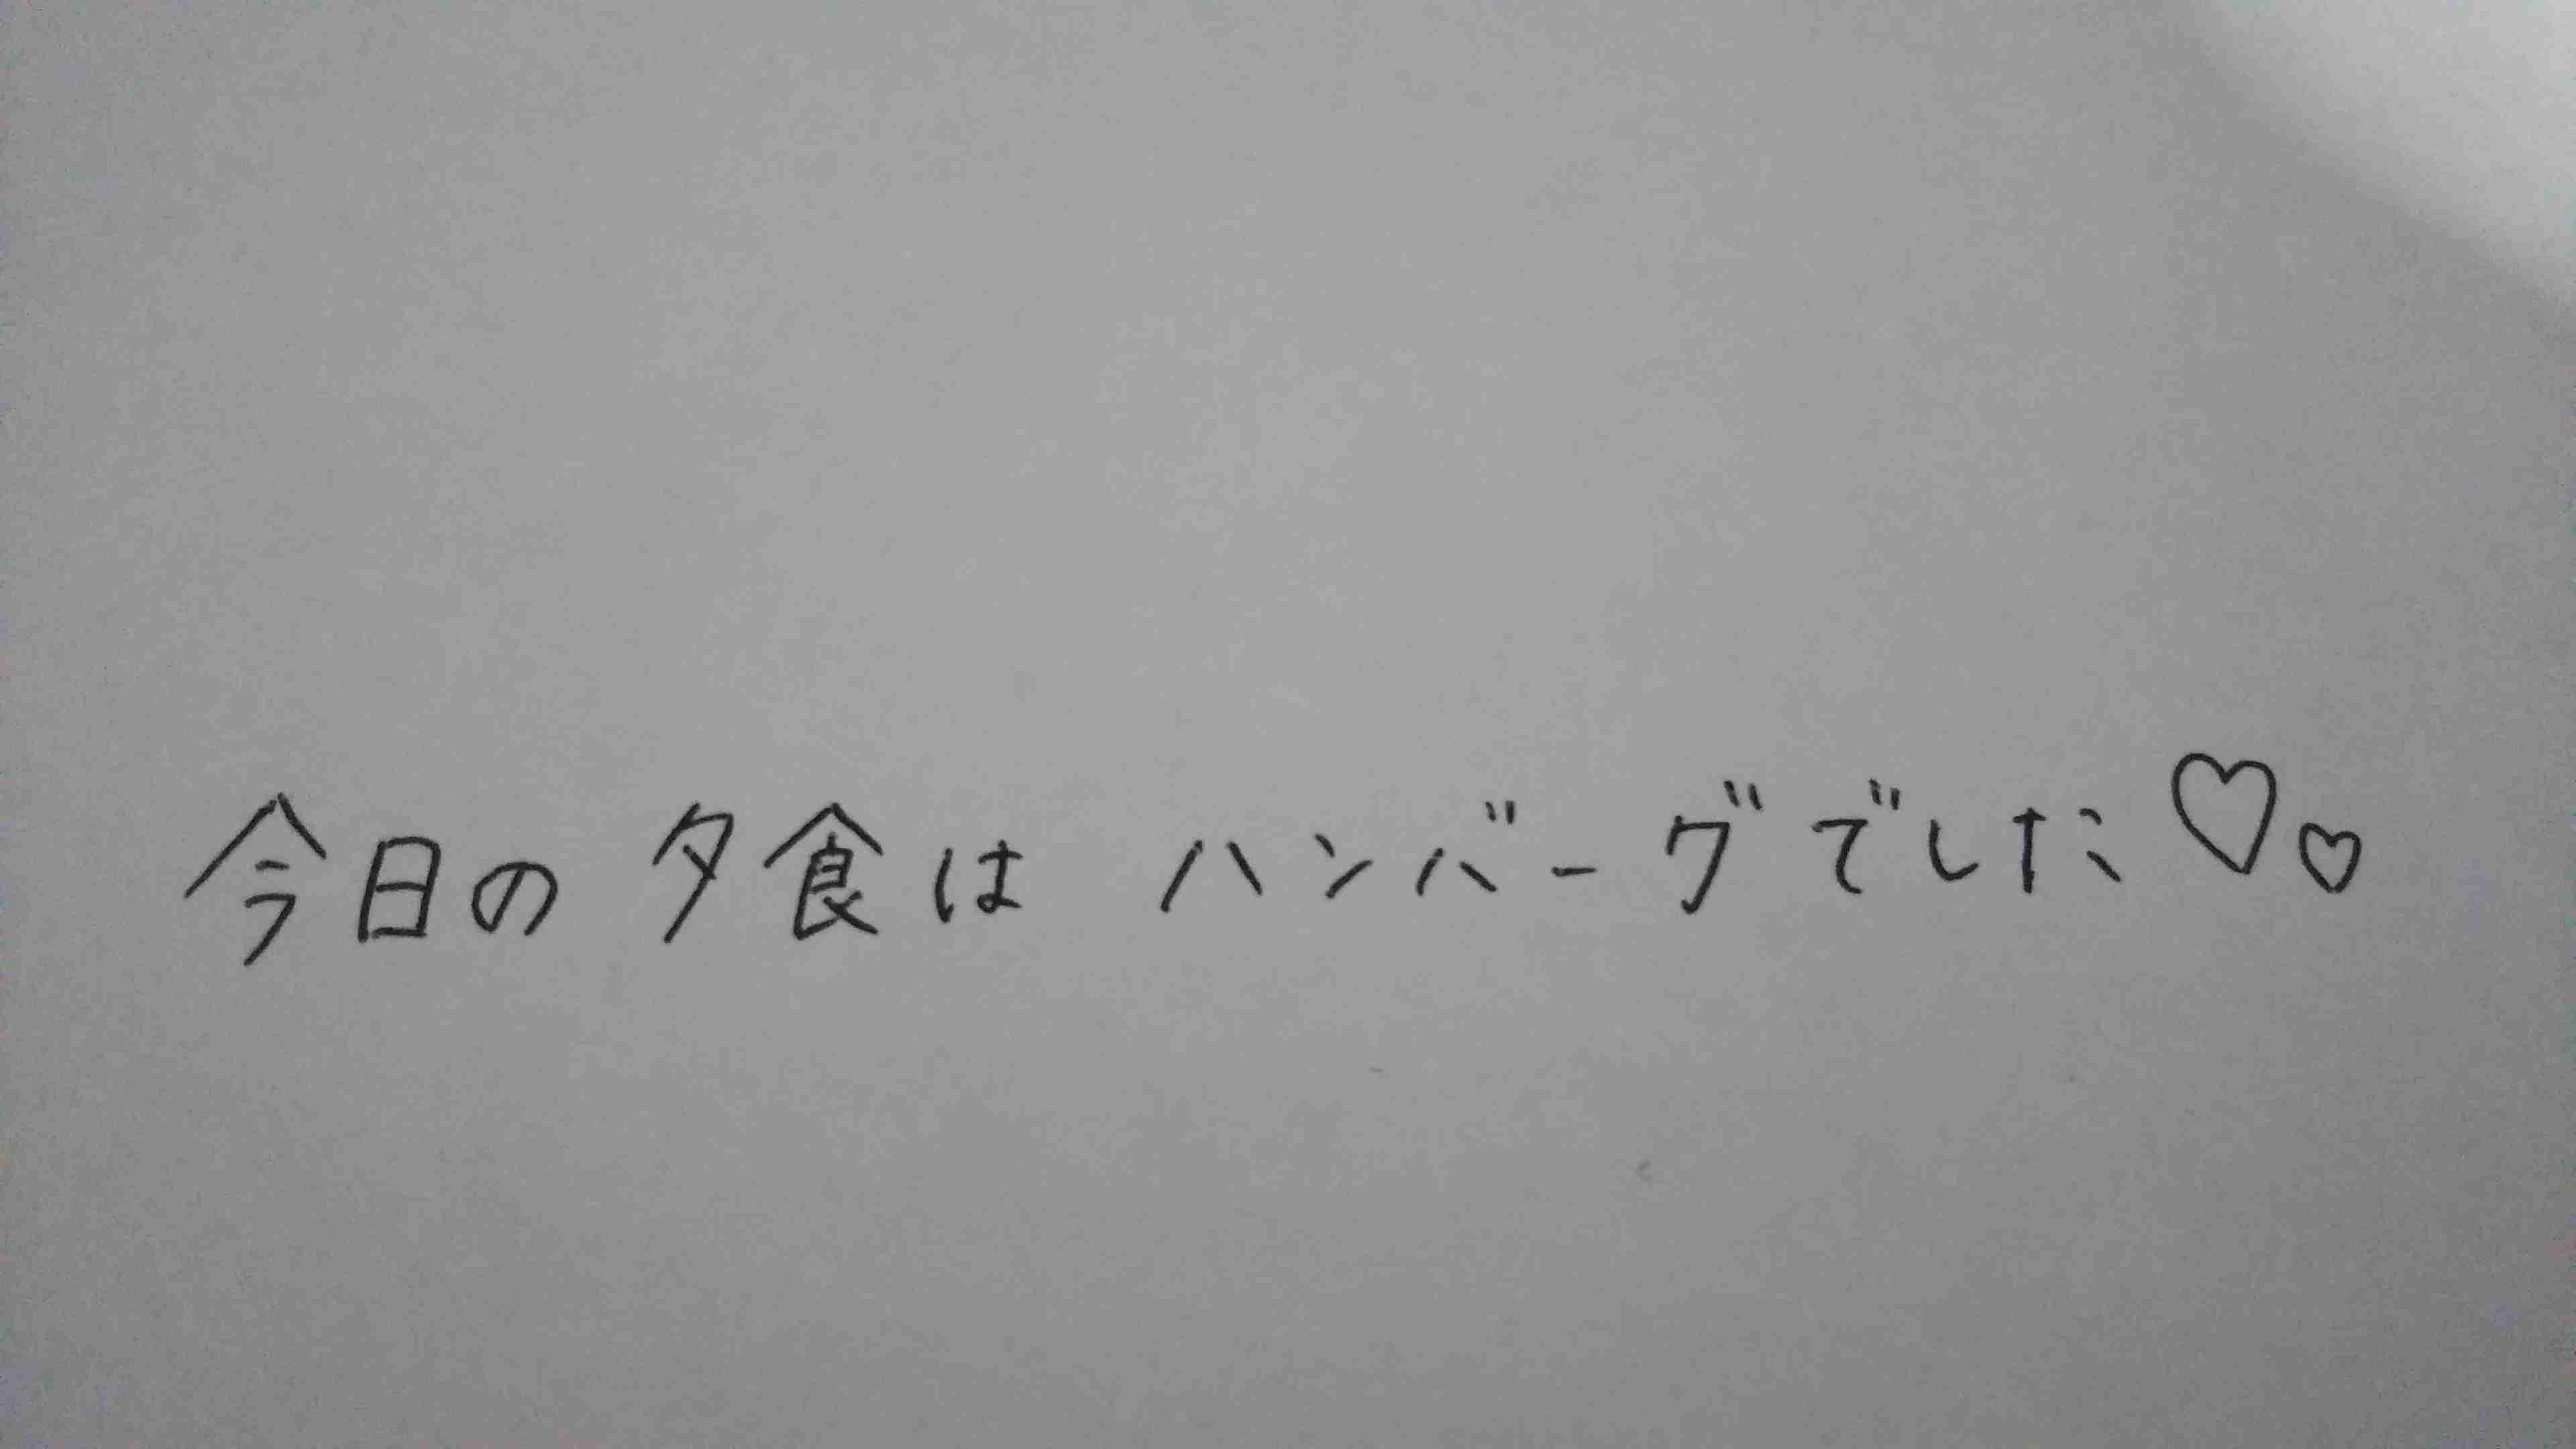 今日の 夕食は ハンバーグでした♡♡